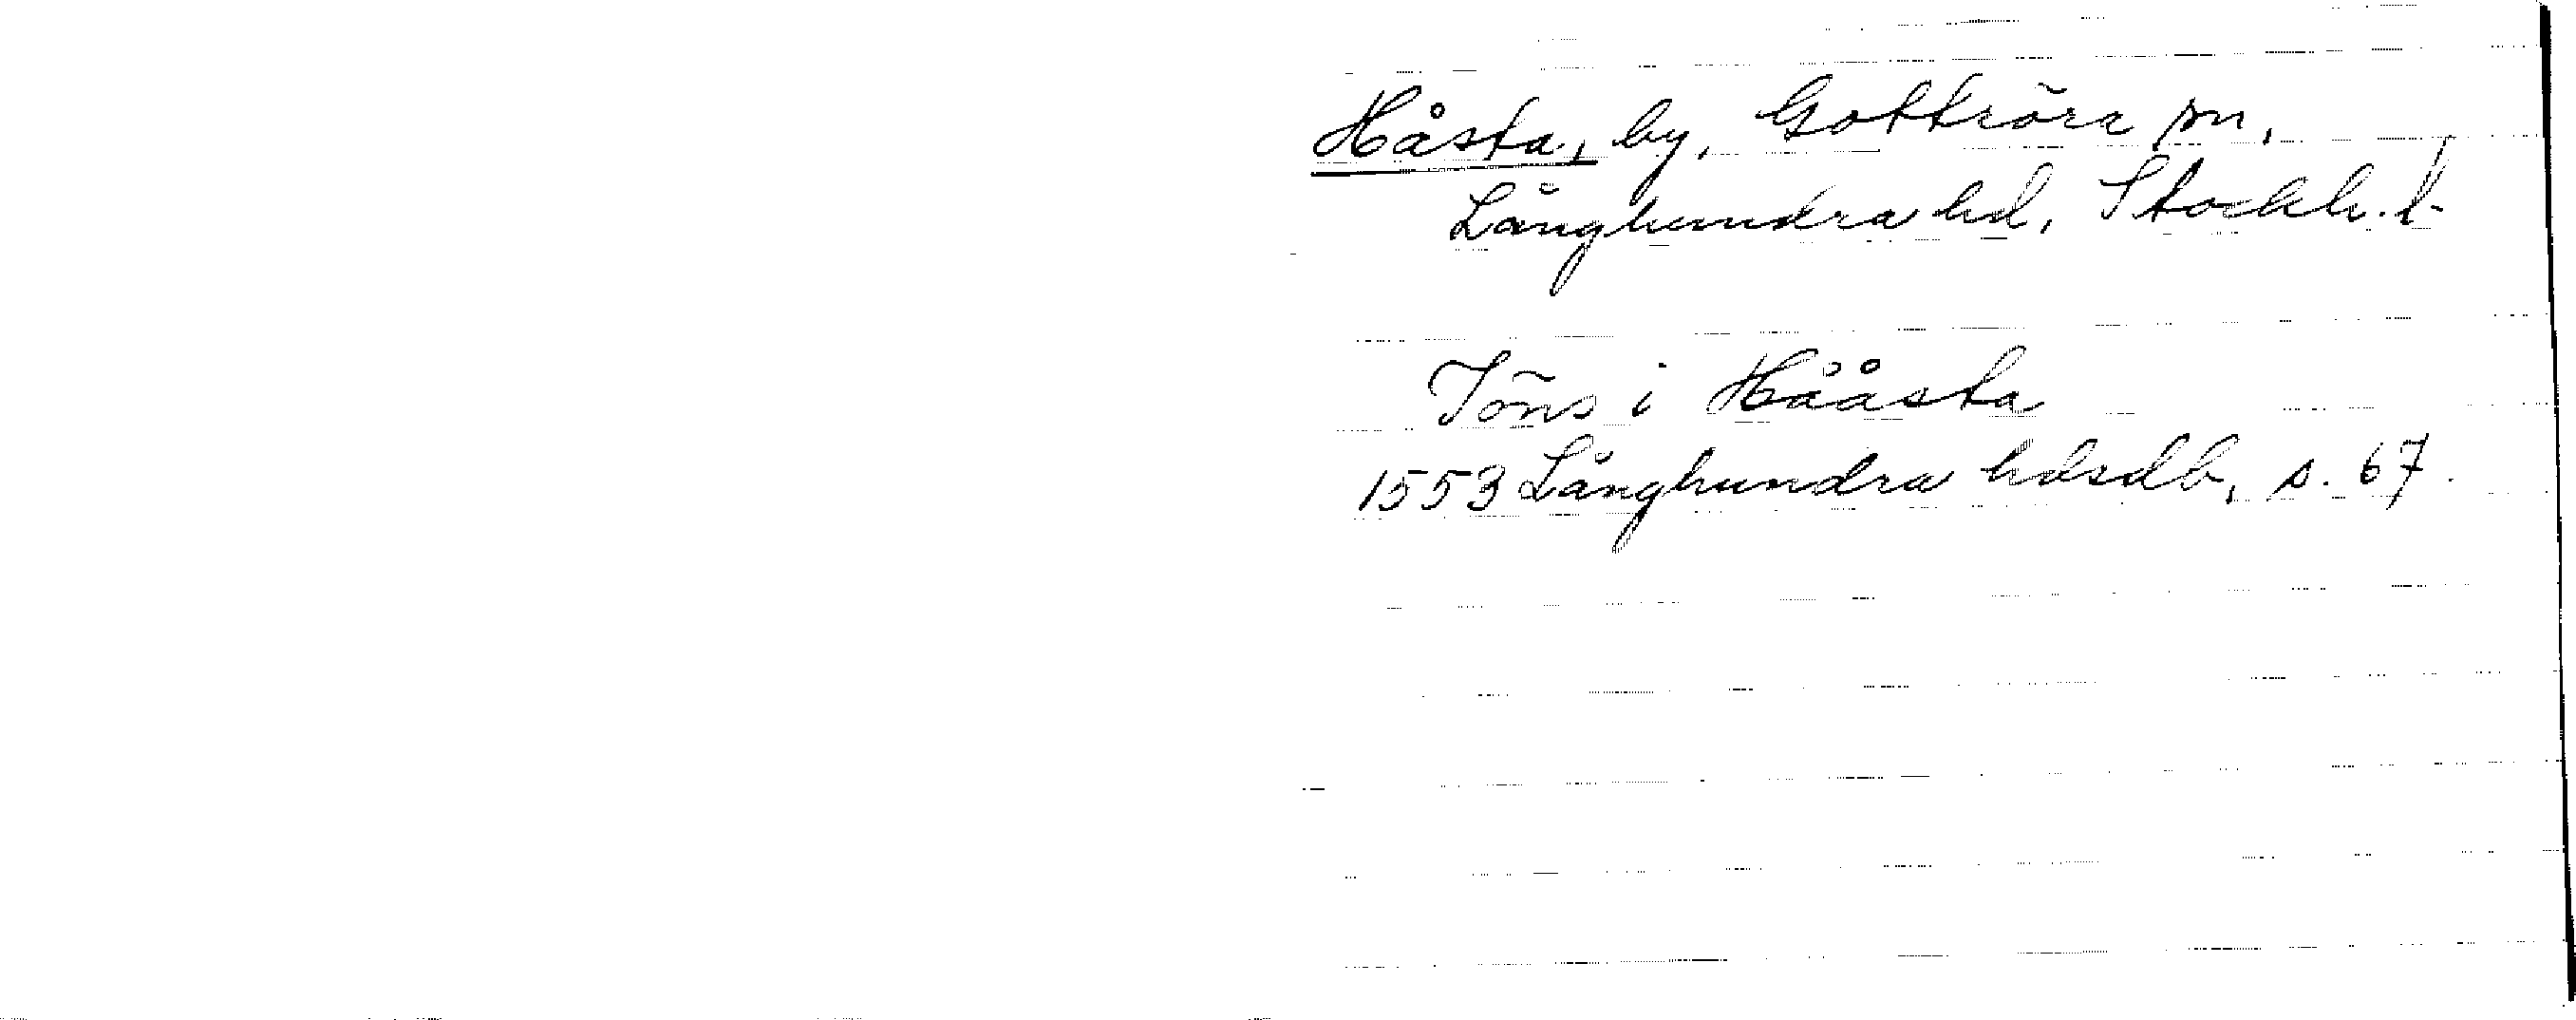 Håsta, by, Gottröra sn,
Långhundra hd, Stockh. l.
Jöns i Hååsta
1553 Långhundra hdsdb, s. 67.